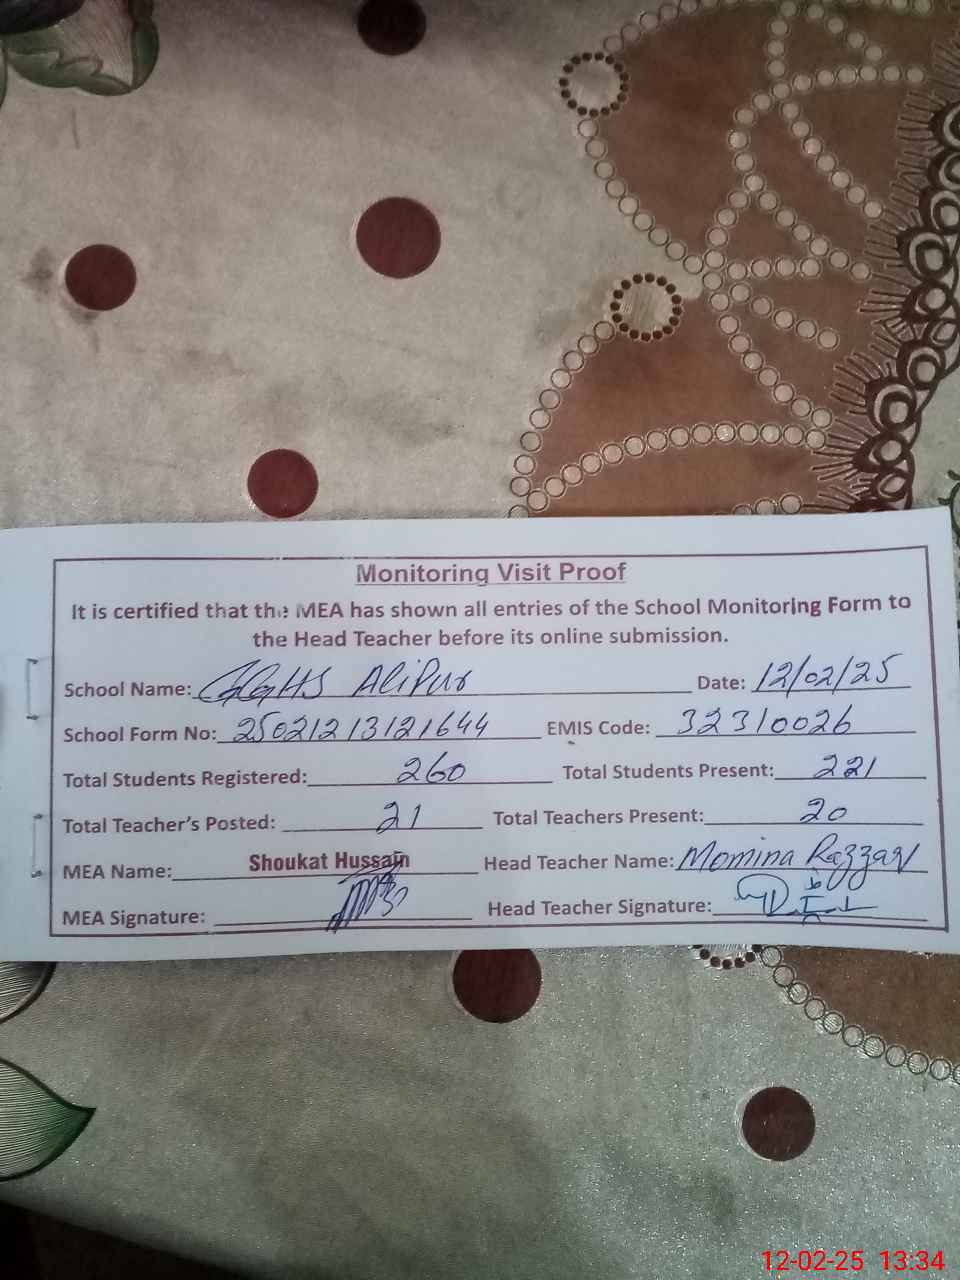 Monitoring Visit Proof
It is certified that the MEA has shown all entries of the School Monitoring Form to
the Head Teacher before its online submission.
School Name: GGHS Alipur Date: 12/02/25
School Form No: 25021213121644 EMIS Code: 32310026
Total Students Registered: 260 Total Students Present: 221
Total Teacher's Posted: 21 Total Teachers Present: 20
MEA Name: Shoukat Hussain Head Teacher Name: Momina Razzaq
MEA Signature: Head Teacher Signature:
12-02-25 13:34